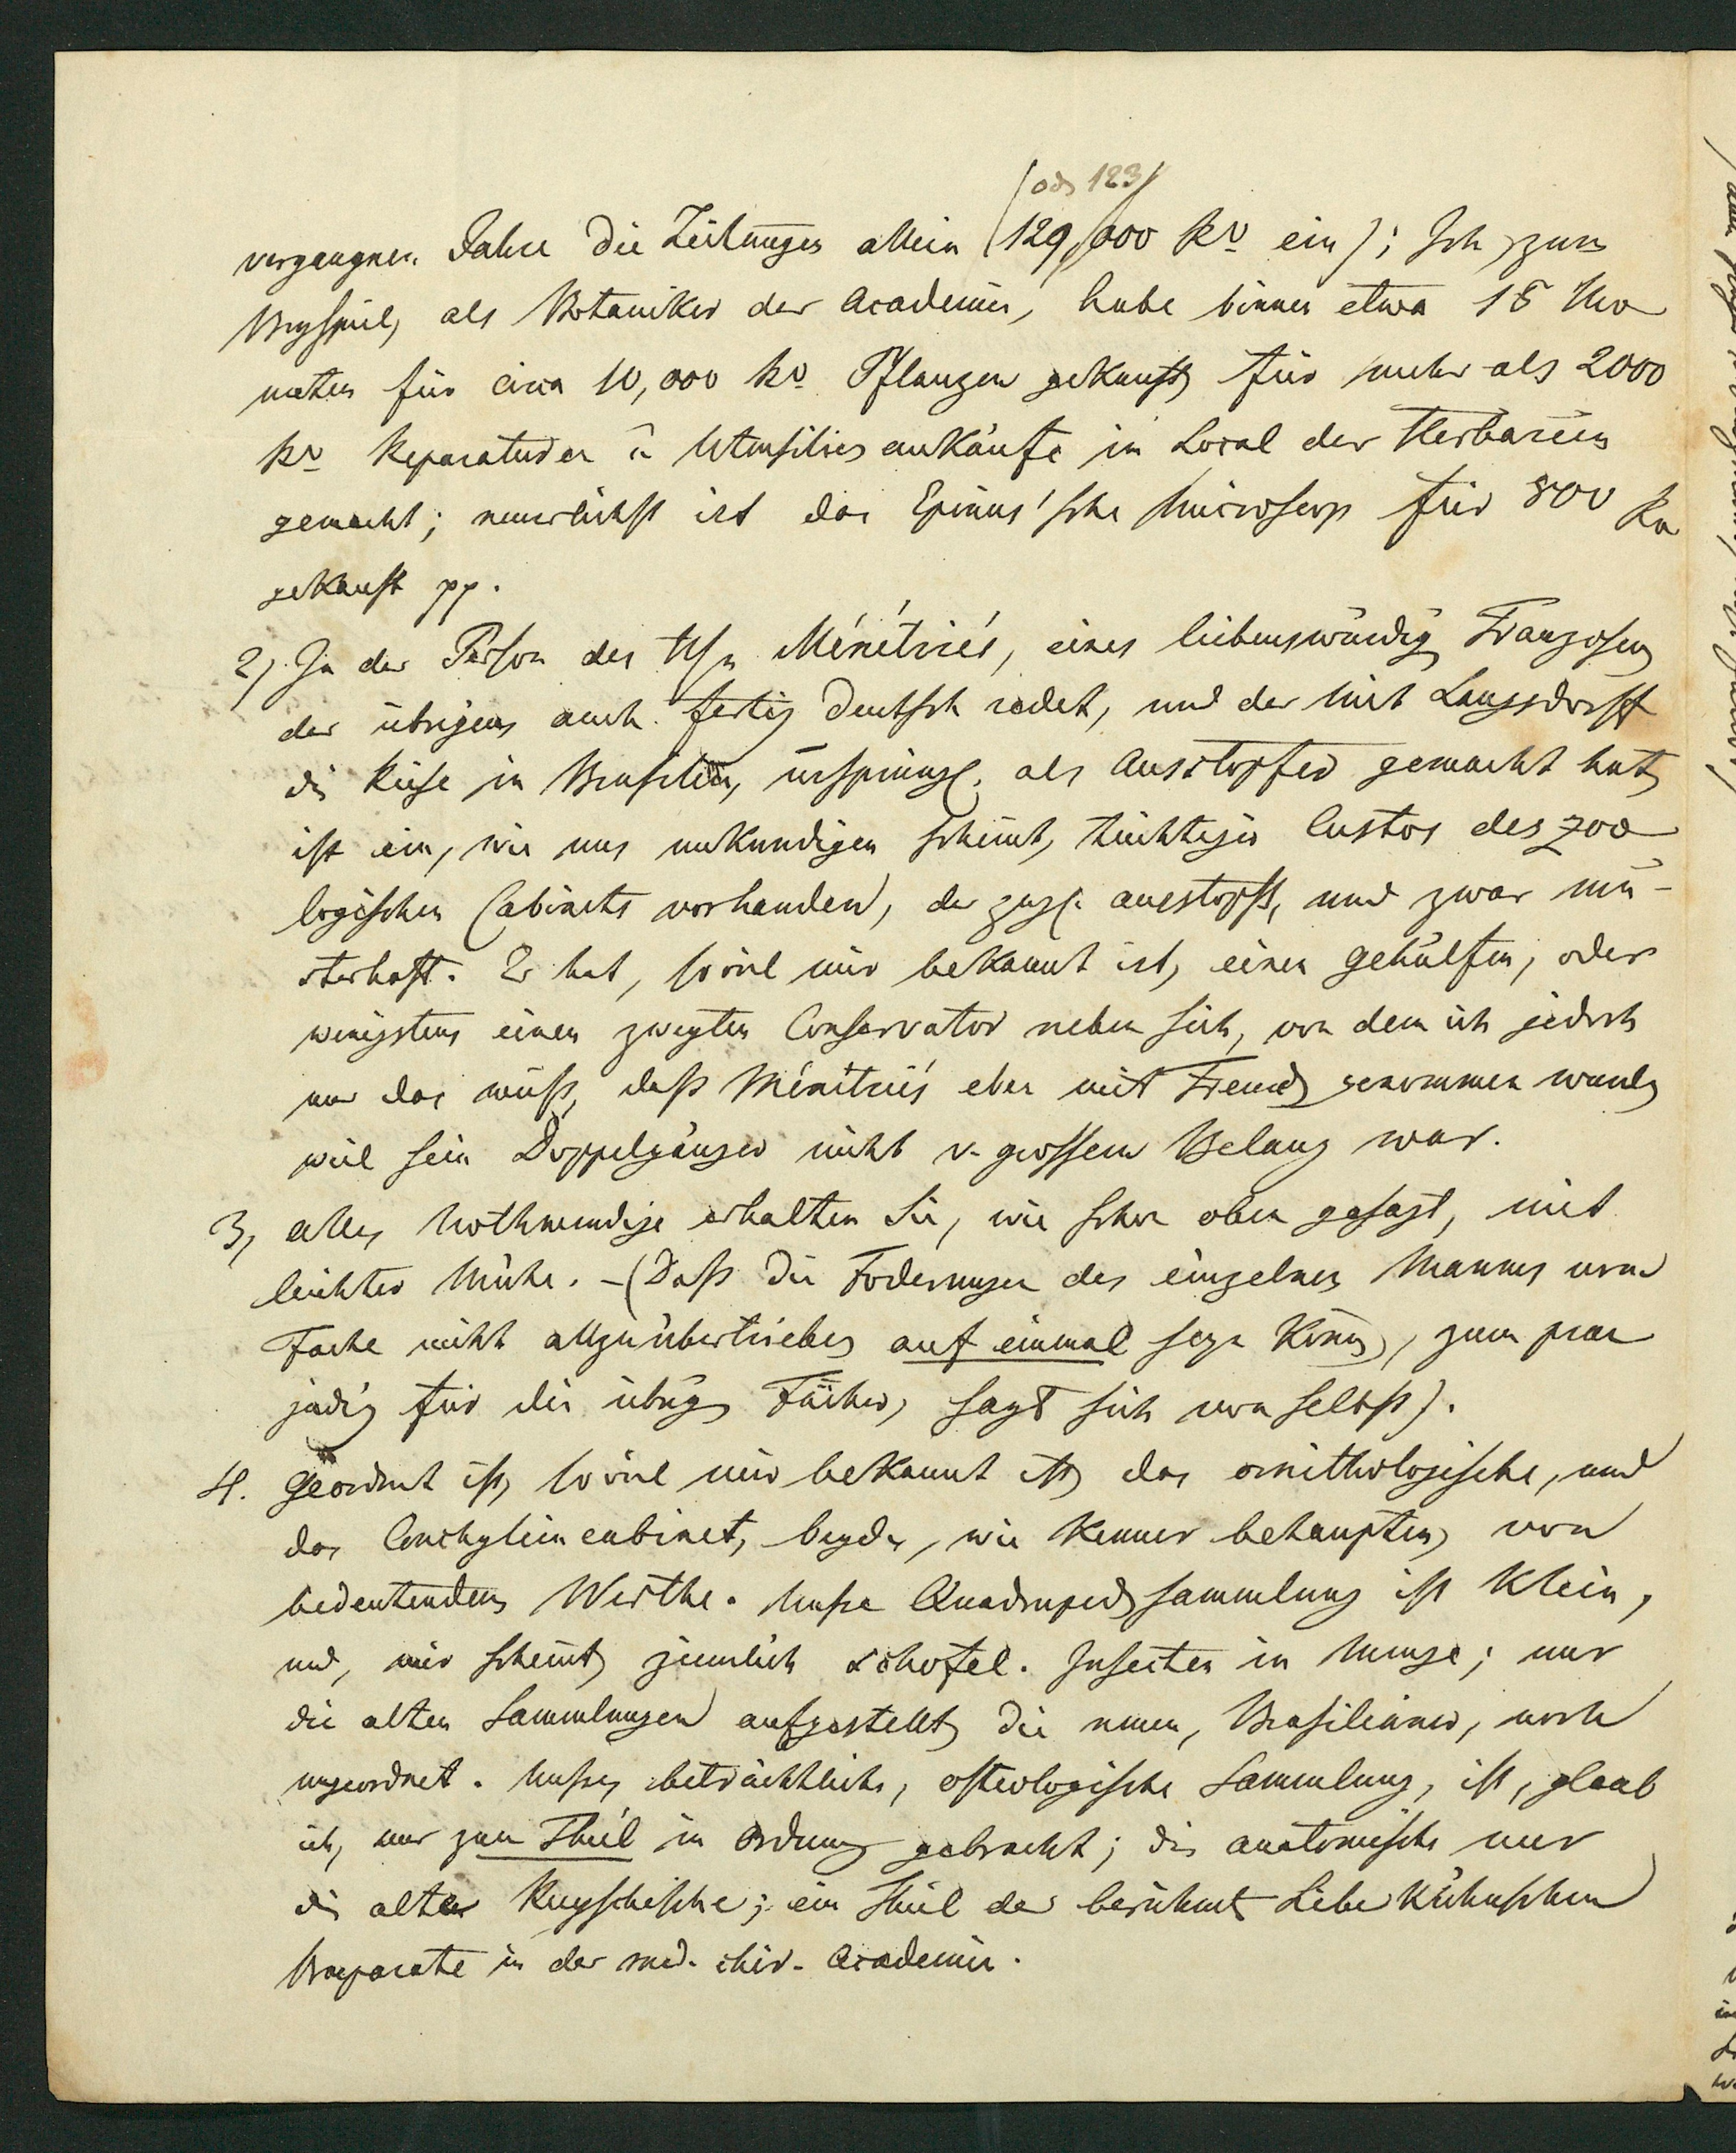 (od. 123)
vergangnen Jahre die Zeitungen allein (129,000 Rv ein); Ich zum
Beyspiel, als Botaniker der Academie, habe binnen etwa 18 Mo
naten für circa 10,000 Rv Pflanzen gekauft, für mehr als 2000
Rv Reparaturen u Utensilien ankäufe im Local des Herbariums
gemacht; neuerlichst ist das Epinus'sche Microscop für 800 Rv
gekauft pp.
2). In der Person des Hrn Ménétriés, eines liebenswürdig Franzosen,
der übrigens auch fertig deutsch redet, und der mit Langsdorff
die Reise in Brasilien, ursprüngl. als Ausstopfer gemacht hat,
ist ein, wie uns unkundigen scheint, tüchtiger Custos des zoo
logischen Cabinets vorhanden, der zugl. ausstopft, und zwar mu-
sterhaft. Er hat, soviel mir bekannt ist, einen Gehülfen, oder
wenigstens einen zweyten Conservator neben sich, von dem ich jedoch
nur das weiß, daß Ménétriés eben mit Freud genommen wurde,
weil sein Doppelgänger nicht v. grossem Belang war.
3, alles Nothwendige erhalten Sie, wie schon oben gesagt, mit
leichter Mühe. - (Daß die Foderungen des einzelnen Mannes vom
Fache nicht allzuübertrieben auf einmal seyn könn, zum prae
judiz für die übrig Fächer, sagt sich von selbst).
4. Geordnet ist, soviel mir bekannt ist, das ornithologische, und
das Conchylien cabinet, beyde, wie Kenner behaupten, von
bedeutendem Werthe. Unsre Quadrupedsammlung ist klein,
und, mir scheint, ziemlich schofel. Insecten in Menge; nur
die alten Sammlungen aufgestellt, die neuen, Brasilianer, noch
ungeordnet. Unsre, beträchtliche, osteologische Sammlung, ist, glaub
ich, nur zum Theil in Ordnung gebracht; die anatomische nur
die alte Ruyschische; ein Theil der berühmt Lieberkühnschen
Praeparate in der med. chir. Academie.